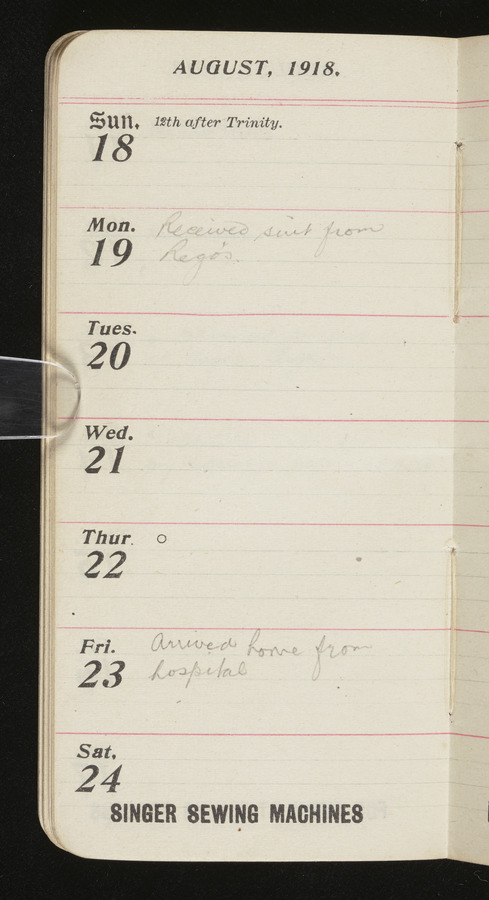 AUGUST, 1918.
Sun. 12th after Trinity.
18
Mon. Received suit from
19 Rego's.
Tues.
20
Wed.
21
Thur. ○
22
Fri. Arrived home from
23 hospital
Sat.
24
SINGER SEWING MACHINES